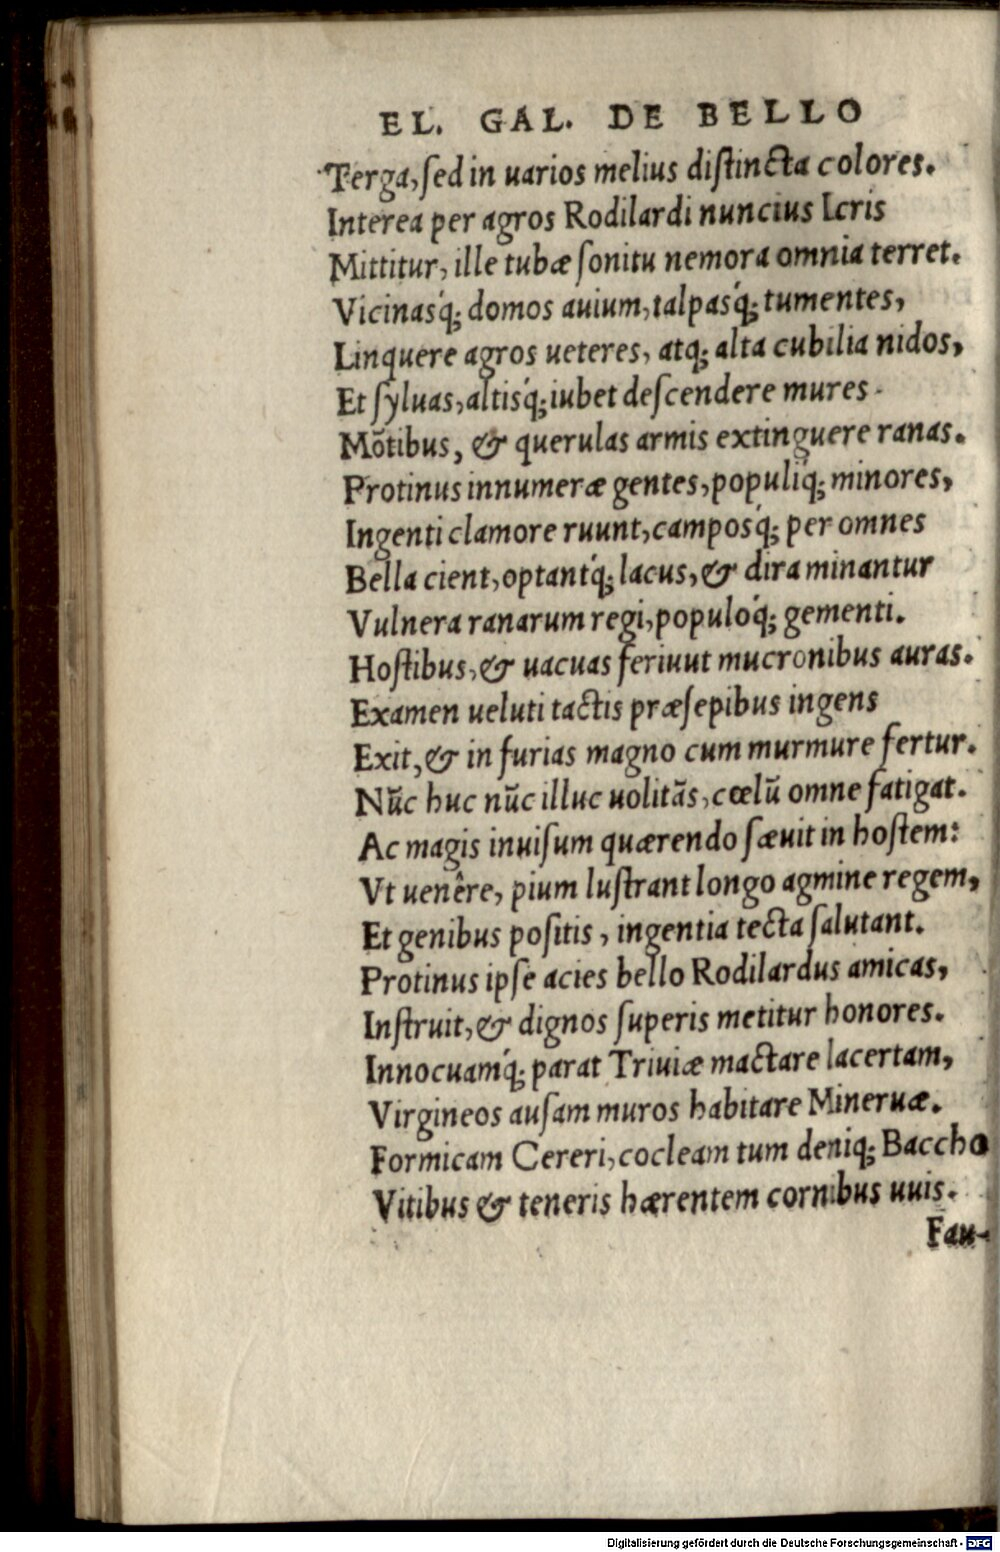 EL. GAL. DE BELLO
Terga, sed in uarios melius distincta colores.
Interea per agros Rodilardi nuncius Icris
Mittitur, ille tubæ sonitu nemora omnia terret.
Vicinasq́; domos auium, talpasq́; tumentes,
Linquere agros ueteres, atq; alta cubilia nidos,
Et syluas, altisq́; iubet descendere mures.
Mõtibus, & querulas armis extinguere ranas.
Protinus innumeræ gentes, populiq́; minores,
Ingenti clamore ruunt, camposq́; per omnes
Bella cient, optantq́; lacus, & dira minantur
Vulnera ranarum regi, populoq́; gementi.
Hostibus, & uacuas feriuut mucronibus auras.
Examen ueluti tactis præsepibus ingens
Exit, & in furias magno cum murmure fertur.
Nũc huc nũc illuc uolitãs, cœlũ omne fatigat.
Ac magis inuisum quærendo sæuit in hostem:
Vt uenêre, pium lustrant longo agmine regem,
Et genibus positis, ingentia tecta salutant.
Protinus ipse acies bello Rodilardus amicas,
Instruit, & dignos superis metitur honores.
Innocuamq́; parat Triuiæ mactare lacertam,
Virgineos ausam muros habitare Mineruæ.
Formicam Cereri, cocleam tum deniq; Baccho
Vitibus & teneris hærentem cornibus uuis.
Fau-
Digitalisierung gefördert durch die Deutsche Forschungsgemeinschaft - DFG